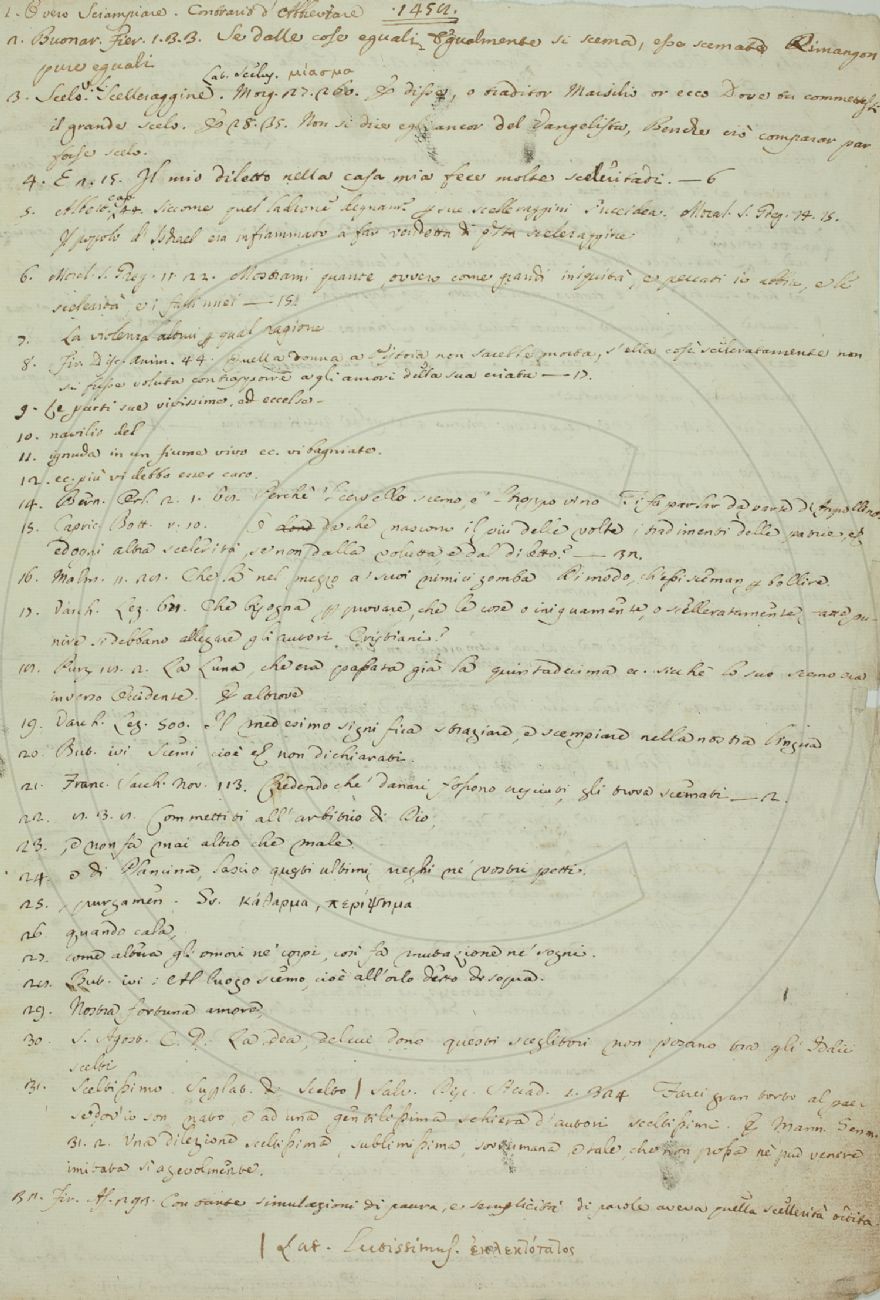 1. O vero Sciampiare. Contrario d'Abbreviare 1454.
2. Buonar. Fier. 1. 3. 3. Se dalle cose eguali Egualmente si scema, esse scemate Rimangon
pure eguali
Lat. Scelus. μίασμα
3. Scelo. Scelleraggine. Morg. 27. 260. E disse, o traditor Marsilio or ecco Dove tu commettesti
il grande scelo. E 28. 35. Non si dice egli ancor del Vangelista, Benchè ciò comparar par
forse scelo.
4. E 2. 15. Il mio diletto nella casa mia fece molte sceleritadi. — 6
5. cap. 44. siccome quel ladrone degnam. p sue scelleraggini l'uccidea. Moral. S. Greg. 14. 15.
Il popolo d'Isdrael era infiammato a far vendetta di qsta sceleraggine
6. Moral. S. Greg. 11. 22. Mostrami quante, ovvero come grandi iniquità, e peccati io abbia, e le
scelerità, e i falli miei — 15.
7. La violenza altrui p qual ragione
8. Fir. Disc. Anim. 44. Quella donna a Pistoia non sarebbe morta, s'ella così scelleratamente non
si fusse voluta contrapporre agli amori della sua criata — 17.
9. Le parti sue vivissime, ed eccelse.
10. navilio del
11. ignuda in un fiume vivo ec. vi bagniate.
12. ec. più vi debbo esser caro.
14. Bern. Orl. 2. 1. 61. Perchè 'l cervello scemo, e 'l troppo vino Ti fa parlar da parte di Apolline
15. Capric. Bott. 5. 10. E da chè nascono il più delle volte i tradimenti delle patrie, et
ed ogni altra scelerità, se non dalla voluttà, e dal diletto? — 32.
16. Malm. 11. 21. Che fa nel mezzo a' suoi nimici zomba Di modo, ch'essi sceman p bollire.
17. Varch. Lez. 621. Che bisogna p provare, che le cose o iniquamente, o scelleratamente fatte pu-
nire si debbano allegare gli autori Cristiani?
18. Purg. 18. 2. La Luna, che era passata già la quintadecima ec. sicchè lo suo scemo era
inverso Occidente. E altrove
19. Varch. Lez. 500. Il medesimo significa straziare, e scempiare nella nostra lingua
20. But. ivi Scemi, cioè non dichiarati.
21. Franc. Sacch. Nov. 113. Credendo che' danari fossono cresciuti, gli trova scemati — 2.
22. 8. 3. 8. Commettiti all'arbitrio di Dio,
23. , e non fa mai altro che male.
24. e di Plancina, lascio questi ultimi uegghi ne' vostri petti.
25. , purgamen. Gr. κάθαρμα, περίψημα
26 quando cala,
27. come altera gli omori ne' corpi, così fa mutazione ne' sogni.
28. But. ivi: Al luogo scemo, cioè all'orlo detto di sopra.
29. Nostra fortuna amore,
30. S. Agost. C. D. La dea, delcui dono questi sceglitori non pozano tra gli Iddii
scelti
31. Sceltissimo. Superlat. di Scelto | Salv. Disc. Accad. 1. 324 Farei gran torto al pae-
se, dov'io son nato, e ad una gentilissima schiera d'autori sceltissimi. E Mann. Term.
31. 2. Una dilezione sceltissima, sublimissima, sovrumana, e tale, che non possa nè può venire
imitata si agevolmente.
32. Fir. As. 293. Con tante simulazioni di paura, e semplicità di parole aveva quella scellerità ordita.
| Lat. Lectissimus. ἐπιλεκτότατος